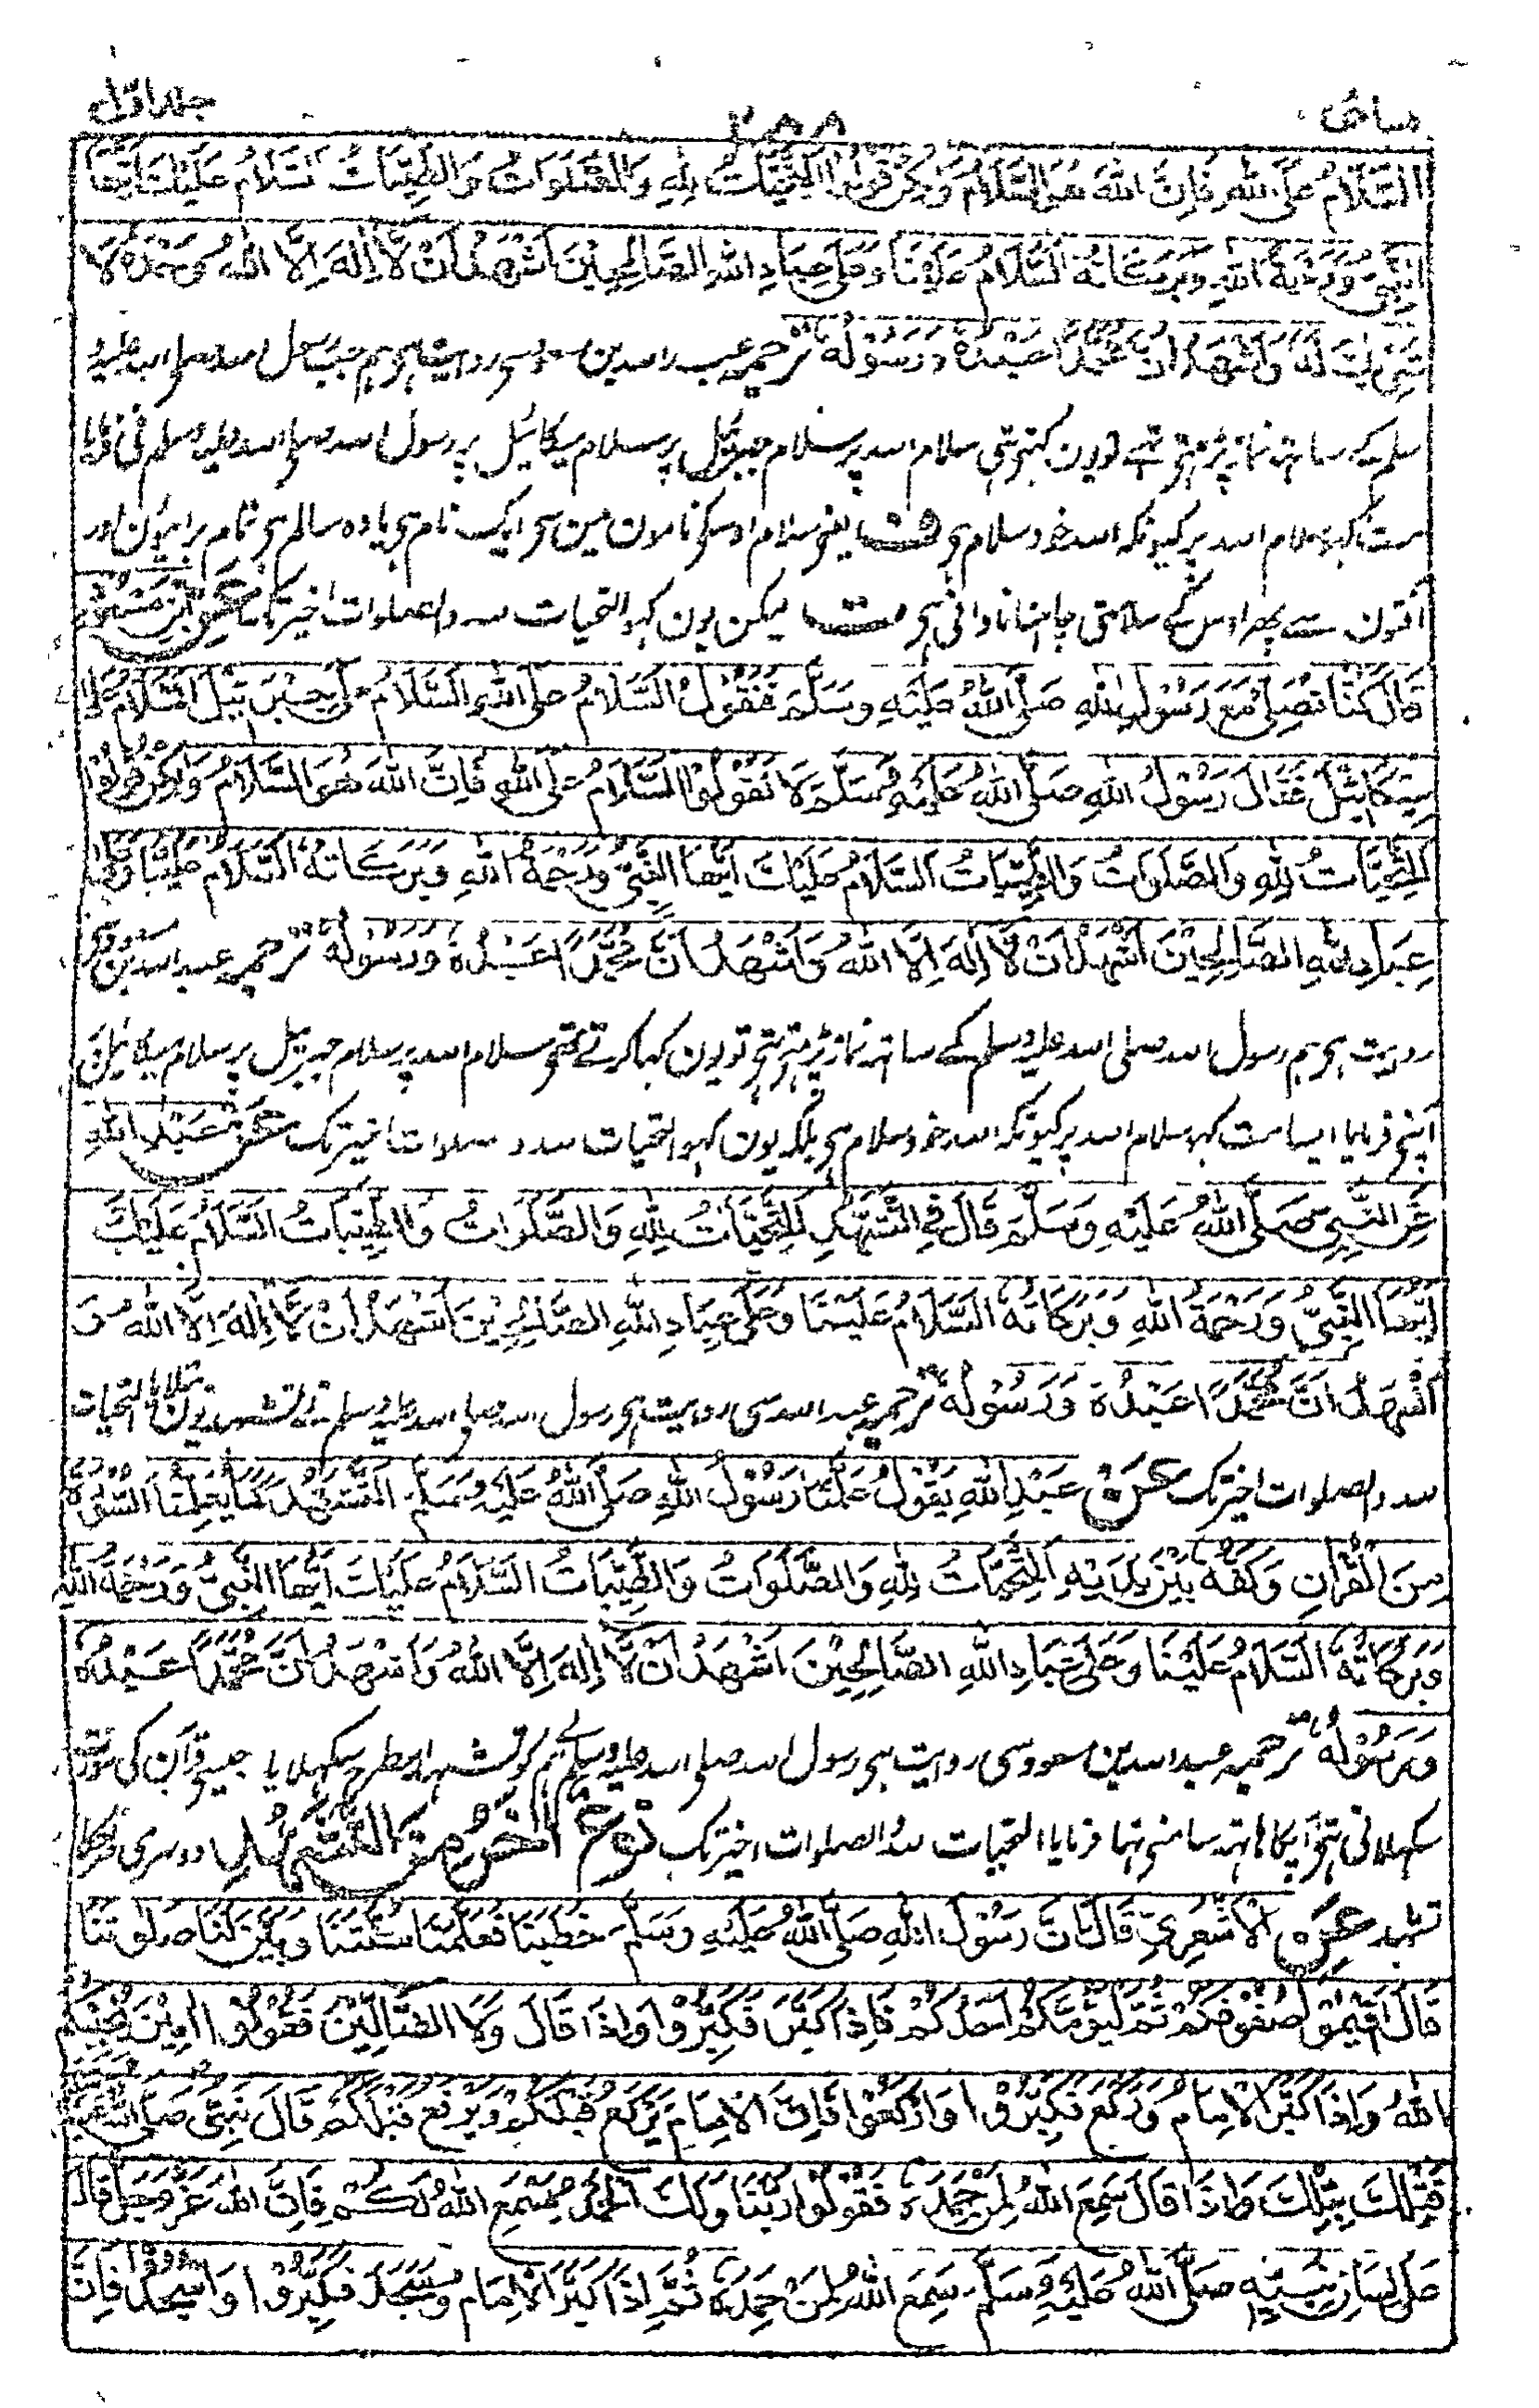 جلد اول
۲۸۸
السَّلَامُ عَلَى اللهِ فَإِنَّ اللهَ هُوَ السَّلَامُ وَلٰكِنْ قُولُوا التَّحِيَّاتُ لِلهِ وَالصَّلَوَاتُ وَالطَّيِّبَاتُ السَّلَامُ عَلَيْكَ اَيُّهَا
النَّبِيُّ وَرَحْمَةُ اللهِ وَبَرَكَاتُهُ السَّلَامُ عَلَيْنَا وَعَلٰى عِبَادِ اللهِ الصَّالِحِيْنَ اَشْهَدُ اَنْ لَّا اِلٰهَ اِلَّا اللهُ وَحْدَهُ لَا
شَرِيْكَ لَهُ وَاَشْهَدُ اَنَّ مُحَمَّدًا عَبْدُهُ وَرَسُوْلُهُ ترجمہ عبد اللہ بن مسعود سی روایت ہی ہم جب رسول اللہ صلی اللہ علیہ و
سلم کے ساتہ نماز پڑہتی تہے تو یون کہتی تہی سلام اللہ پر سلام جبرئیل پر سلام میکائیل پر رسول اللہ صلی اللہ علیہ وسلم نی فرمایا
مت کہو سلام اللہ پر کیونکہ اللہ خود سلام ہی ف یعنی سلام اوسکو نامون مین سی ایک نام ہی یا وہ سالم ہی تمام برائیون اور
آفتون سے پھر اوس کے سلامتی چاہنا نادانی ہی لیکن یون کہو التحیات للہ والصلوات اخیر تک عَنِ ابْنِ مَسْعُوْدٍ
قَالَ كُنَّا نُصَلِّيْ مَعَ رَسُوْلِ اللهِ صَلَّى اللهُ عَلَيْهِ وَسَلَّمَ فَنَقُوْلُ السَّلَامُ عَلَى اللهِ السَّلَامُ عَلٰى جِبْرَئِيْلَ السَّلَامُ عَلٰى
مِيْكَائِيْلَ فَقَالَ رَسُوْلُ اللهِ صَلَّى اللهُ عَلَيْهِ وَسَلَّمَ لَا تَقُوْلُوا السَّلَامُ عَلَى اللهِ فَاِنَّ اللهَ هُوَ السَّلَامُ وَلٰكِنْ قُوْلُوْا
اَلتَّحِيَّاتُ لِلهِ وَالصَّلَوَاتُ وَالطَّيِّبَاتُ السَّلَامُ عَلَيْكَ اَيُّهَا النَّبِيُّ وَرَحْمَةُ اللهِ وَبَرَكَاتُهُ السَّلَامُ عَلَيْنَا وَعَلٰى
عِبَادِ اللهِ الصَّالِحِيْنَ اَشْهَدُ اَنْ لَّا اِلٰهَ اِلَّا اللهُ وَاَشْهَدُ اَنَّ مُحَمَّدًا عَبْدُهُ وَرَسُوْلُهُ ترجمہ عبد اللہ بن مسعود سی
روایت ہی ہم رسول اللہ صلی اللہ علیہ وسلم کے ساتہ نماز پڑہتی تہی تو یون کہا کرتے تھی سلام اللہ پر سلام جبریل پر سلام میکائیل پر
آپنی فرمایا ایسا مت کہو سلام اللہ پر کیونکہ اللہ خود سلام ہی بلکہ یون کہو التحیات للہ و صلوات اخیر تک عَنْ عَبْدِ اللهِ
عَنِ النَّبِيِّ صَلَّى اللهُ عَلَيْهِ وَسَلَّمَ قَالَ فِي التَّشَهُّدِ اَلتَّحِيَّاتُ لِلهِ وَالصَّلَوَاتُ وَالطَّيِّبَاتُ السَّلَامُ عَلَيْكَ
اَيُّهَا النَّبِيُّ وَرَحْمَةُ اللهِ وَبَرَكَاتُهُ السَّلَامُ عَلَيْنَا وَعَلٰى عِبَادِ اللهِ الصَّالِحِيْنَ اَشْهَدُ اَنْ لَّا اِلٰهَ اِلَّا اللهُ وَ
اَشْهَدُ اَنَّ مُحَمَّدًا عَبْدُهُ وَرَسُوْلُهُ ترجمہ عبد اللہ سی روایت ہی رسول اللہ صلی اللہ علیہ وسلم نے تشہد یون بتلایا التحیات
للہ والصلوات اخیر تک عَنْ عَبْدِ اللهِ يَقُوْلُ عَلَّمَنَا رَسُوْلُ اللهِ صَلَّى اللهُ عَلَيْهِ وَسَلَّمَ التَّشَهُّدَ كَمَا يُعَلِّمُنَا السُّوْرَةَ
مِنَ الْقُرْاٰنِ وَكَفُّهُ بَيْنَ يَدَيْهِ اَلتَّحِيَّاتُ لِلهِ وَالصَّلَوَاتُ وَالطَّيِّبَاتُ السَّلَامُ عَلَيْكَ اَيُّهَا النَّبِيُّ وَرَحْمَةُ اللهِ
وَبَرَكَاتُهُ السَّلَامُ عَلَيْنَا وَعَلٰى عِبَادِ اللهِ الصَّالِحِيْنَ اَشْهَدُ اَنْ لَّا اِلٰهَ اِلَّا اللهُ وَاَشْهَدُ اَنَّ مُحَمَّدًا عَبْدُهُ
وَرَسُوْلُهُ ترجمہ عبد اللہ بن مسعود سی روایت ہی رسول اللہ صلی اللہ علیہ وسلم نے ہم کو تشہد اسطرح سکہلایا جیسی قرآن کی سورت
سکہلاتی تہی آپکا ہاتہ سامنی تہا فرمایا التحیات للہ والصلوات اخیر تک نَوْعٌ اٰخَرُ مِنَ التَّشَهُّدِ دوسری طرحکا
تشہد عَنِ الْاَشْعَرِيِّ قَالَ اِنَّ رَسُوْلَ اللهِ صَلَّى اللهُ عَلَيْهِ وَسَلَّمَ خَطَبَنَا فَعَلَّمَنَا سُنَّتَنَا وَبَيَّنَ لَنَا صَلٰوتَنَا
قَالَ اَقِيْمُوْا صُفُوْفَكُمْ ثُمَّ لْيَؤُمَّكُمْ اَحَدُكُمْ فَاِذَا كَبَّرَ فَكَبِّرُوْا وَاِذَا قَالَ وَلَا الضَّالِّيْنَ فَقُوْلُوْا اٰمِيْنَ يُجِبْكُمُ
اللهُ وَاِذَا كَبَّرَ الْاِمَامُ وَرَكَعَ فَكَبِّرُوْا وَارْكَعُوْا فَاِنَّ الْاِمَامَ يَرْكَعُ قَبْلَكُمْ وَيَرْفَعُ قَبْلَكُمْ قَالَ نَبِيُّ صَلَّى اللهُ
فَتِلْكَ بِتِلْكَ وَاِذَا قَالَ سَمِعَ اللهُ لِمَنْ حَمِدَهُ فَقُوْلُوْا رَبَّنَا وَلَكَ الْحَمْدُ يَسْمَعِ اللهُ لَكُمْ فَاِنَّ اللهَ عَزَّ وَجَلَّ قَالَ
عَلٰى لِسَانِ نَبِيِّهِ صَلَّى اللهُ عَلَيْهِ وَسَلَّمَ سَمِعَ اللهُ لِمَنْ حَمِدَهُ ثُمَّ اِذَا كَبَّرَ الْاِمَامُ وَسَجَدَ فَكَبِّرُوْا وَاسْجُدُوْا فَاِنَّ